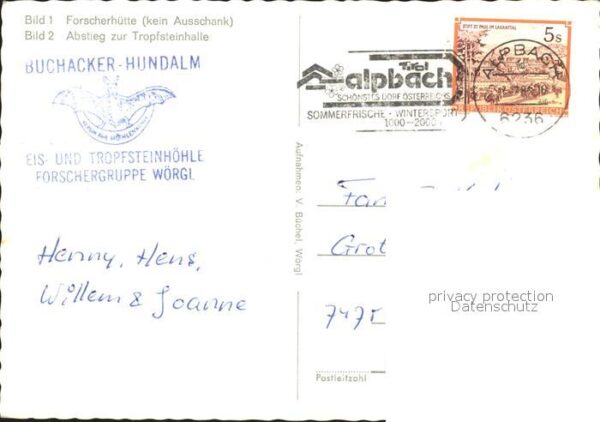 Bild 1 Forscherhütte (kein Ausschank)
Bild 2 Abstieg zur Tropfsteinhalle
BUCHACKER-HUNDALM
EIS- UND TROPFSTEINHÖHLE
FORSCHERGRUPPE WÖRGL
Henny, Hens,
Willem & Joanne
Aufnahmen: V. Büchel, Wörgl
Tirol
alpbach
SCHÖNSTES DORF ÖSTERREICHS
SOMMERFRISCHE · WINTERSPORT
1000-2000
STIFT ST. PAUL IM LAVANTTAL
5s
ALPBACH
6236
Fam
Grot
7475
privacy protection
Datenschutz
Postleitzahl